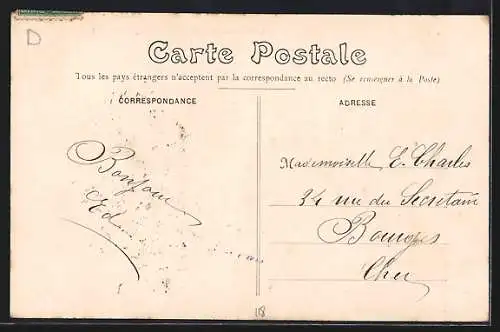 D
Carte Postale
Tous les pays étrangers n'acceptent par la correspondance au recto (Se renseigner à la Poste)
CORRESPONDANCE
ADRESSE
Bonjour
Ed
Mademoiselle E. Charles
34 rue du Secretain
Bourges
Cher
18